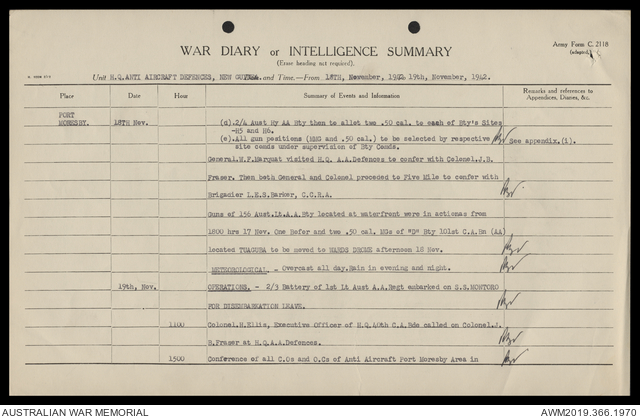 Army Form C. 2118
(adapted)
WAR DIARY or INTELLIGENCE SUMMARY
(Erase heading not required).
Unit H.Q.ANTI AIRCRAFT DEFENCES, NEW GUINEA. and Time.—From 18TH, November, 1942 19th, November, 1942.
Place Date Hour Summary of Events and Information Remarks and references to Appendices, Diaries, &c.
PORT
MORESBY. 18TH Nov. (d).2/4 Aust Hy AA Bty then to allot two .50 cal. to each of Bty's Sites
-H5 and H6.
(e).All gun positions (HMG and .50 cal.) to be selected by respective
site comds under supervision of Bty Comds. See appendix.(1).
General.W.F.Marquat visited H.Q. A.A.Defences to confer with Colonel.J.B.
Fraser. Then both General and Colonel proceded to Five Mile to confer with
Brigadier L.E.S.Barker, C.C.R.A.
Guns of 156 Aust.Lt.A.A.Bty located at waterfront were in actionas from
1800 hrs 17 Nov. One Bofor and two .50 cal. MGs of "D" Bty 101st C.A.Bn (AA)
located TUAGUBA to be moved to WARDS DROME afternoon 18 Nov.
METEOROLOGICAL. - Overcast all day.Rain in evening and night.
19th, Nov. OPERATIONS. - 2/3 Battery of 1st Lt Aust A.A.Regt embarked on S.S.MONTORO
FOR DISEMBARKATION LEAVE.
1100 Colonel.H.Ellis, Executive Officer of H.Q.40th C.A.Bde called on Colonel.J.
B.Fraser at H.Q.A.A.Defences.
1500 Conference of all C.Os and O.Cs of Anti Aircraft Port Moresby Area in
AUSTRALIAN WAR MEMORIAL
AWM2019.366.1970